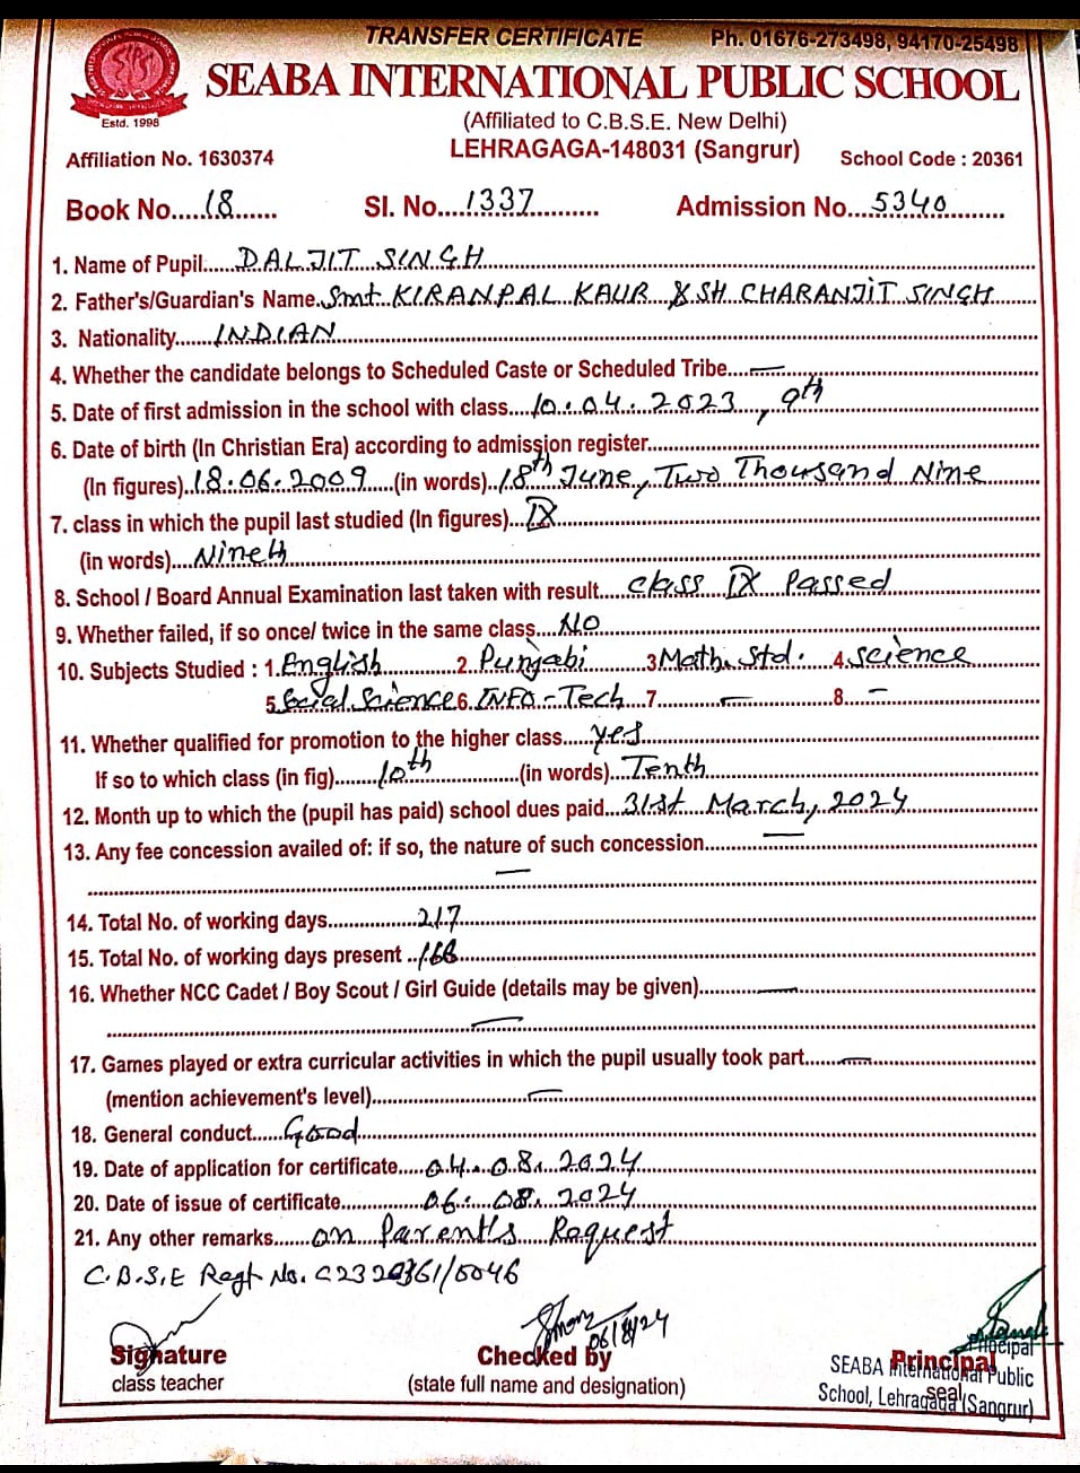 TRANSFER CERTIFICATE Ph. 01676-273498, 94170-25498
SEABA INTERNATIONAL PUBLIC SCHOOL
Estd. 1998
(Affiliated to C.B.S.E. New Delhi)
Affiliation No. 1630374 LEHRAGAGA-148031 (Sangrur) School Code : 20361
Book No.....18...... Sl. No....1337.......... Admission No...5340.........
1. Name of Pupil:.....DALJIT SINGH
2. Father's/Guardian's Name.Smt. KIRANPAL KAUR & SH CHARANJIT SINGH
3. Nationality.......INDIAN
4. Whether the candidate belongs to Scheduled Caste or Scheduled Tribe....—
5. Date of first admission in the school with class....10.04.2023, 9th
6. Date of birth (In Christian Era) according to admission register
(In figures)..18.06.2009....(in words)..18th June, Two Thousand Nine
7. class in which the pupil last studied (In figures)...IX
(in words)....Nineth
8. School / Board Annual Examination last taken with result....class IX Passed
9. Whether failed, if so once/ twice in the same class....NO
10. Subjects Studied : 1.English 2.Punjabi 3Math. Std. 4.science
5.Social Science 6.INFO-Tech 7.— 8.—
11. Whether qualified for promotion to the higher class.....yes
If so to which class (in fig).......10th (in words)..Tenth
12. Month up to which the (pupil has paid) school dues paid...31st March, 2024
13. Any fee concession availed of: if so, the nature of such concession.....—
—
14. Total No. of working days..............217
15. Total No. of working days present ..168
16. Whether NCC Cadet / Boy Scout / Girl Guide (details may be given).....—
—
17. Games played or extra curricular activities in which the pupil usually took part.....—
(mention achievement's level).....—
18. General conduct.....Good
19. Date of application for certificate.....04.08.2024
20. Date of issue of certificate..............06.08.2024
21. Any other remarks......on Parent's Request
C.B.S.E Regt No. C2320361/0046
06/8/24
Signature Checked by Principal
class teacher (state full name and designation) seal
Principal
SEABA International Public
School, Lehragaga (Sangrur)